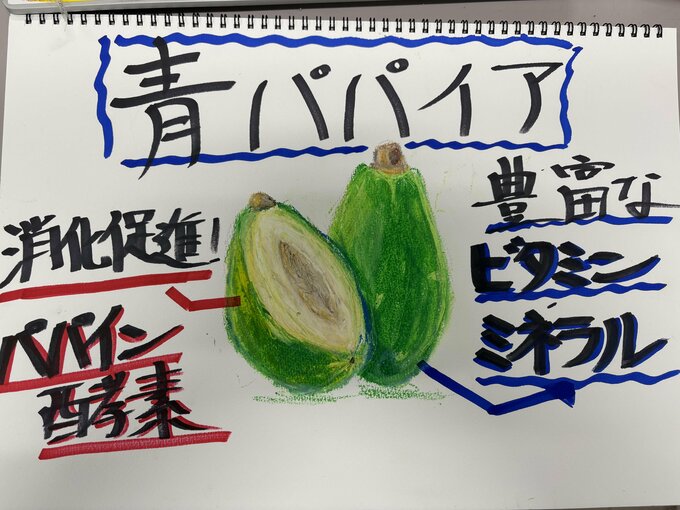 青パパイア
消化促進!
パパイン
酵素
豊富な
ビタミン
ミネラル